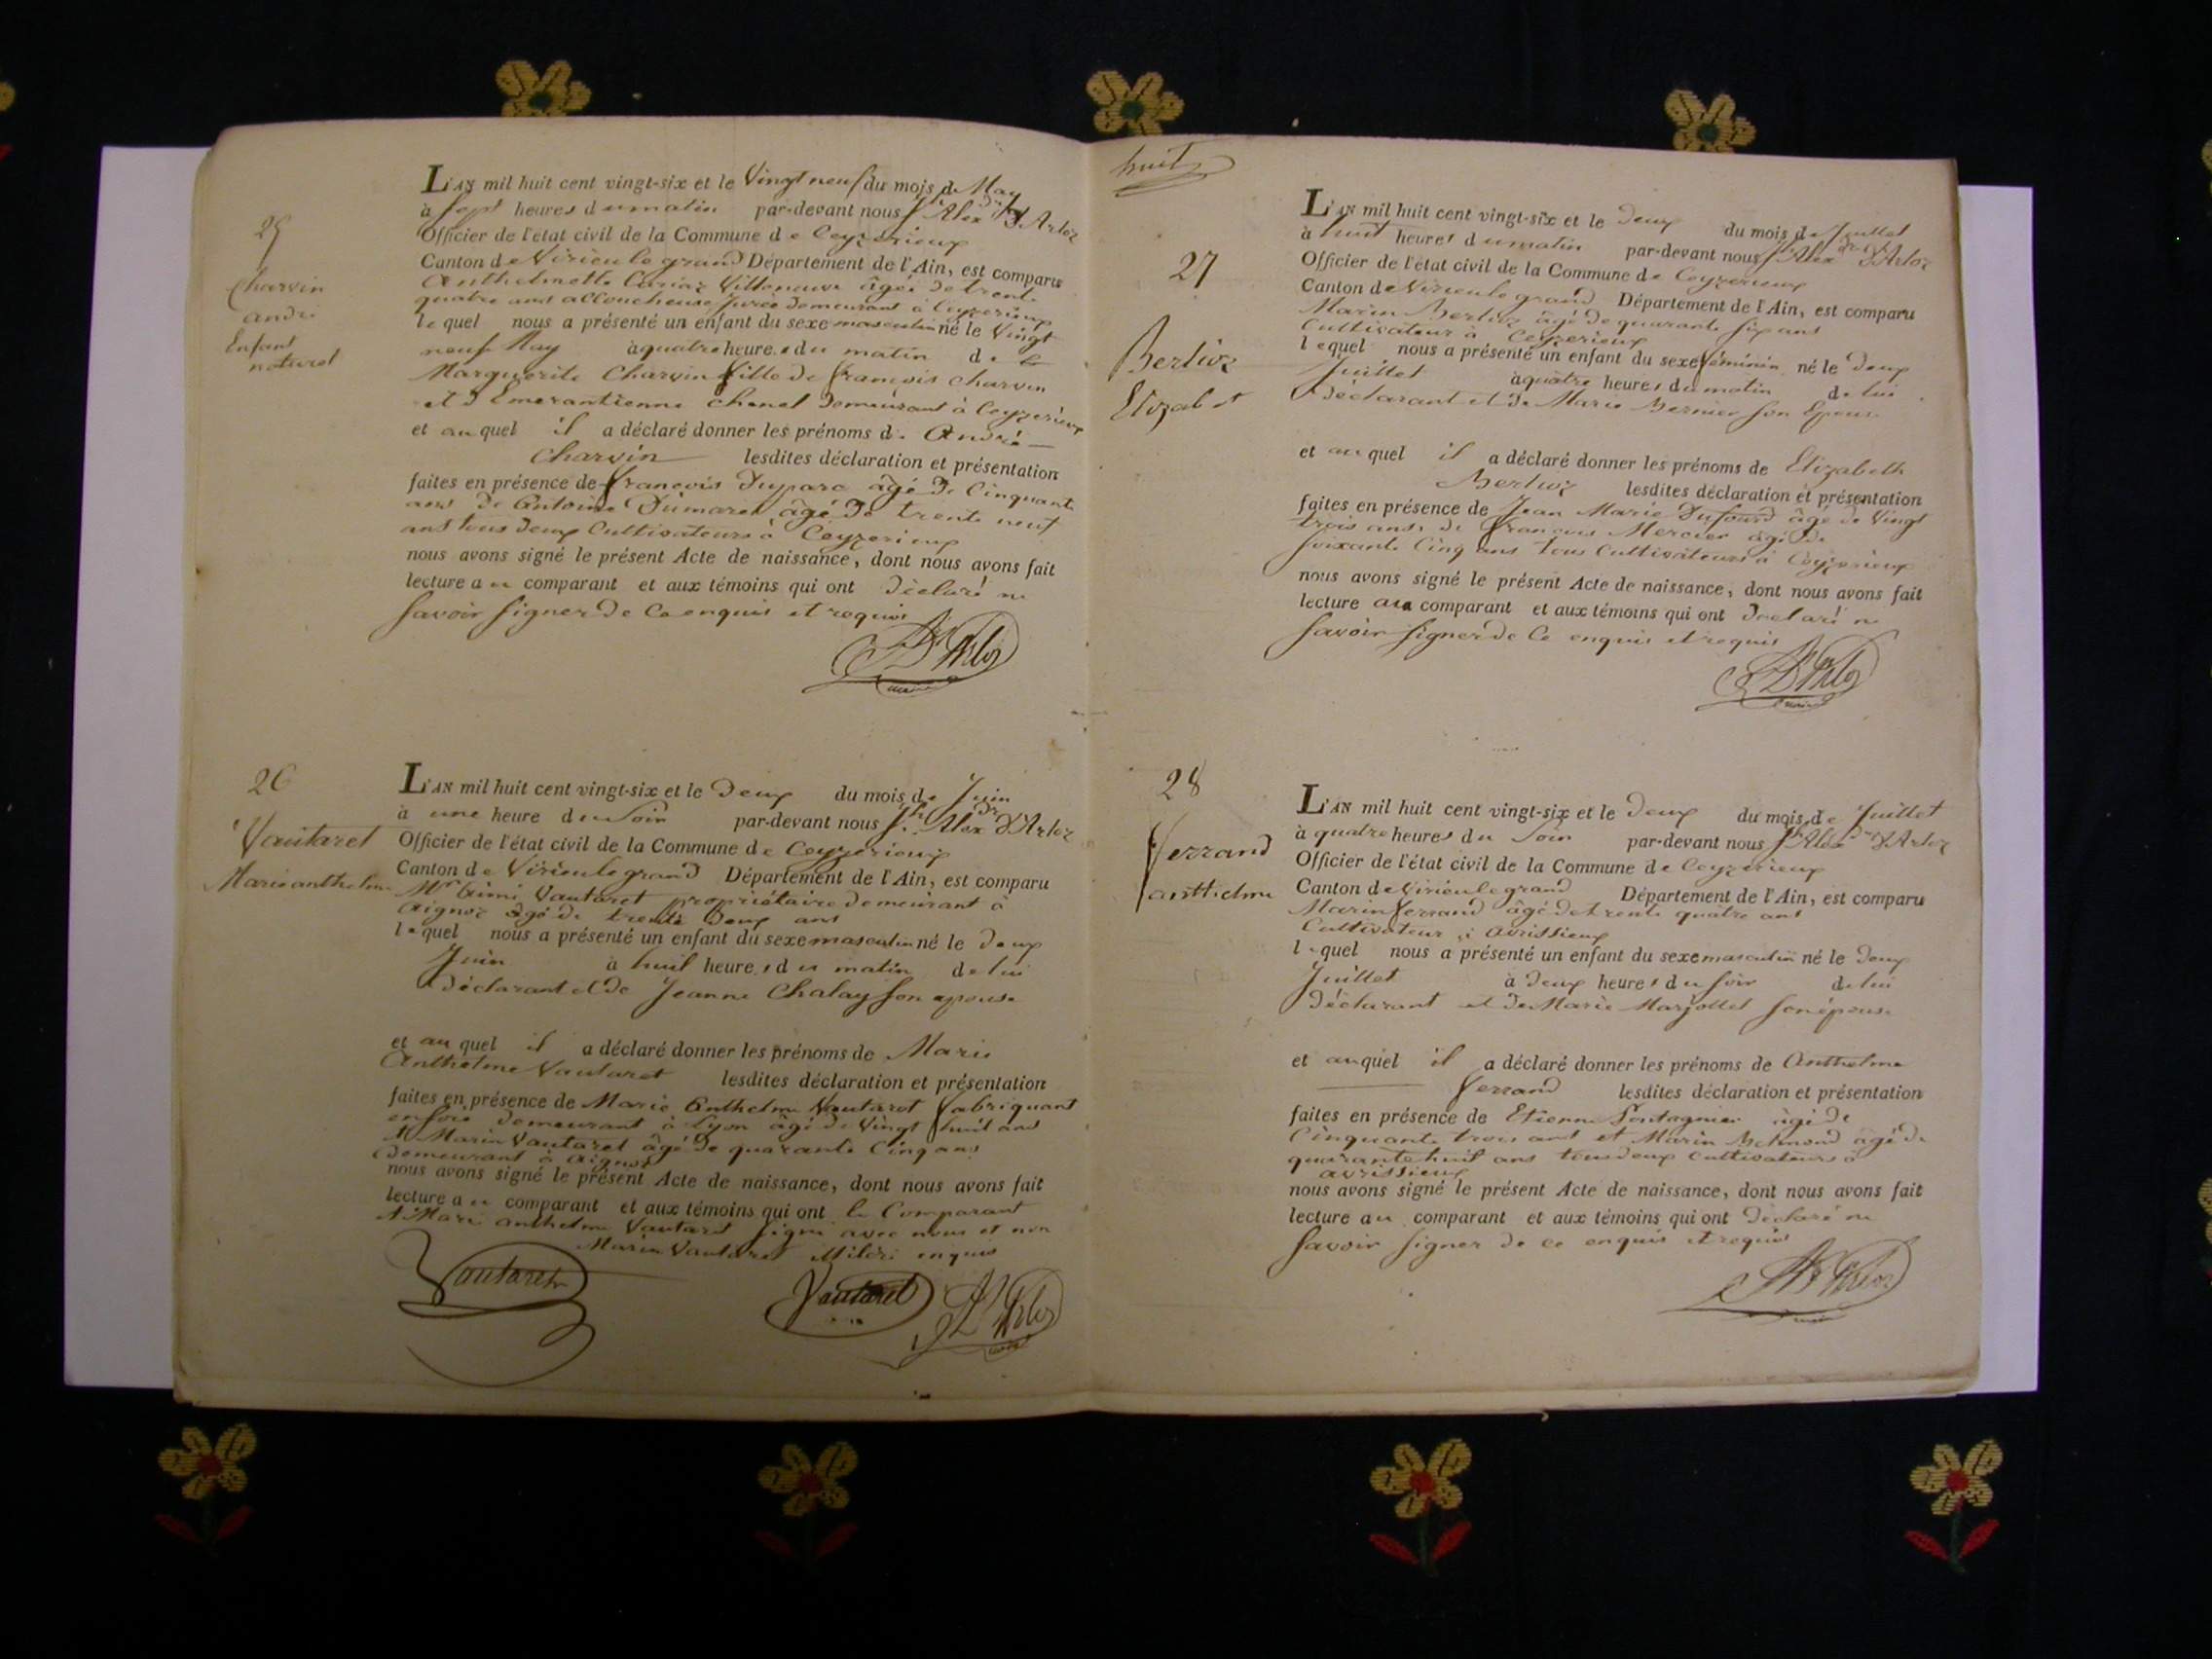 25
Charvin
andré
Enfant
naturel
L'AN mil huit cent vingt-six et le Vingt neuf du mois de May
à Sept heures du matin par-devant nous Jh Alexdre D'Arloz
Officier de l'état civil de la Commune de Ceyzerieux
Canton de Virieu le grand Département de l'Ain, est comparu
Anthelmette Villeneuve âgée de trente
quatre ans accoucheuse Jurée demeurant à Ceyzerieux
lequel nous a présenté un enfant du sexe masculin né le Vingt
neuf May à quatre heures du matin de
Marguerite Charvin fille de françois Charvin
et d'Emerantienne Chenel demeurant à Ceyzerieux
et auquel il a déclaré donner les prénoms de André
Charvin lesdites déclaration et présentation
faites en présence de françois Duparc âgé de Cinquante
ans de Antoine Dumaret âgé de trente neuf
ans tous deux Cultivateurs à Ceyzerieux
nous avons signé le présent Acte de naissance, dont nous avons fait
lecture au comparant et aux témoins qui ont déclaré ne
Savoir Signer de Ce enquis et requis
D'Arloz
maire
26
Vautaret
Marie anthelme
L'AN mil huit cent vingt-six et le Deux du mois de Juin
à une heure du Soir par-devant nous Jh Alexdre D'Arloz
Officier de l'état civil de la Commune de Ceyzerieux
Canton de Virieu le grand Département de l'Ain, est comparu
Mr Aimé Vautaret propriétaire demeurant à
Aignoz âgé de trente Deux ans
lequel nous a présenté un enfant du sexe masculin né le Deux
Juin à huit heures du matin de lui
Déclarant et de Jeanne Chalay son epouse
et auquel il a déclaré donner les prénoms de Marie
Anthelme Vautaret lesdites déclaration et présentation
faites en présence de Marie Anthelme Vautaret fabriquant
en soie demeurant à Lyon âgé de Vingt huit ans
et Marin Vautaret âgé de quarante Cinq ans
demeurant à Aignoz
nous avons signé le présent Acte de naissance, dont nous avons fait
lecture au comparant et aux témoins qui ont le Comparant
et Marie anthelme Vautaret signé avec nous et non
Marin Vautaret enquis
Vautaret
Vautaret
D'Arloz
maire
huit
27
Berlioz
Elizabet
L'AN mil huit cent vingt-six et le deux du mois de Juillet
à huit heures du matin par-devant nous Jh Alexdre D'Arloz
Officier de l'état civil de la Commune de Ceyzerieux
Canton de Virieu le grand Département de l'Ain, est comparu
Marin Berlioz âgé de quarante six ans
Cultivateur à Ceyzerieux
lequel nous a présenté un enfant du sexe féminin né le deux
Juillet à quatre heures du matin de lui
Déclarant et de Marie Bernier son Epouse
et auquel il a déclaré donner les prénoms de Elizabeth
Berlioz lesdites déclaration et présentation
faites en présence de Jean Marie Dufourd âgé de Vingt
trois ans de françois Mercier âgé de
soixante Cinq ans tous Cultivateurs à Ceyzerieux
nous avons signé le présent Acte de naissance, dont nous avons fait
lecture au comparant et aux témoins qui ont Declaré ne
Savoir Signer de Ce enquis et requis
D'Arloz
maire
28
ferrand
anthelme
L'AN mil huit cent vingt-six et le Deux du mois de Juillet
à quatre heures du Soir par-devant nous Jh Alexdre D'Arloz
Officier de l'état civil de la Commune de Ceyzerieux
Canton de Virieu le grand Département de l'Ain, est comparu
Marin ferrand âgé de trente quatre ans
Cultivateur à avrissieux
lequel nous a présenté un enfant du sexe masculin né le Deux
Juillet à Deux heures du soir de lui
Déclarant et de Marie Marjollet son épouse
et auquel il a déclaré donner les prénoms de Anthelme
ferrand lesdites déclaration et présentation
faites en présence de Etienne Pontagnier âgé de
Cinquante trois ans et Marin âgé de
quarante huit ans tous deux Cultivateurs à
avrissieux
nous avons signé le présent Acte de naissance, dont nous avons fait
lecture au comparant et aux témoins qui ont Declaré ne
Savoir Signer de ce enquis et requis
D'Arloz
maire